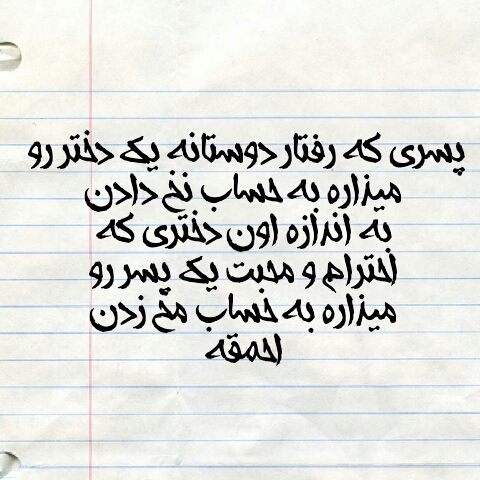 پسری که رفتار دوستانه یک دختر رو
میذاره به حساب نخ دادن
به اندازه اون دختری که
احترام و محبت یک پسر رو
میذاره به حساب مخ زدن
احمقه